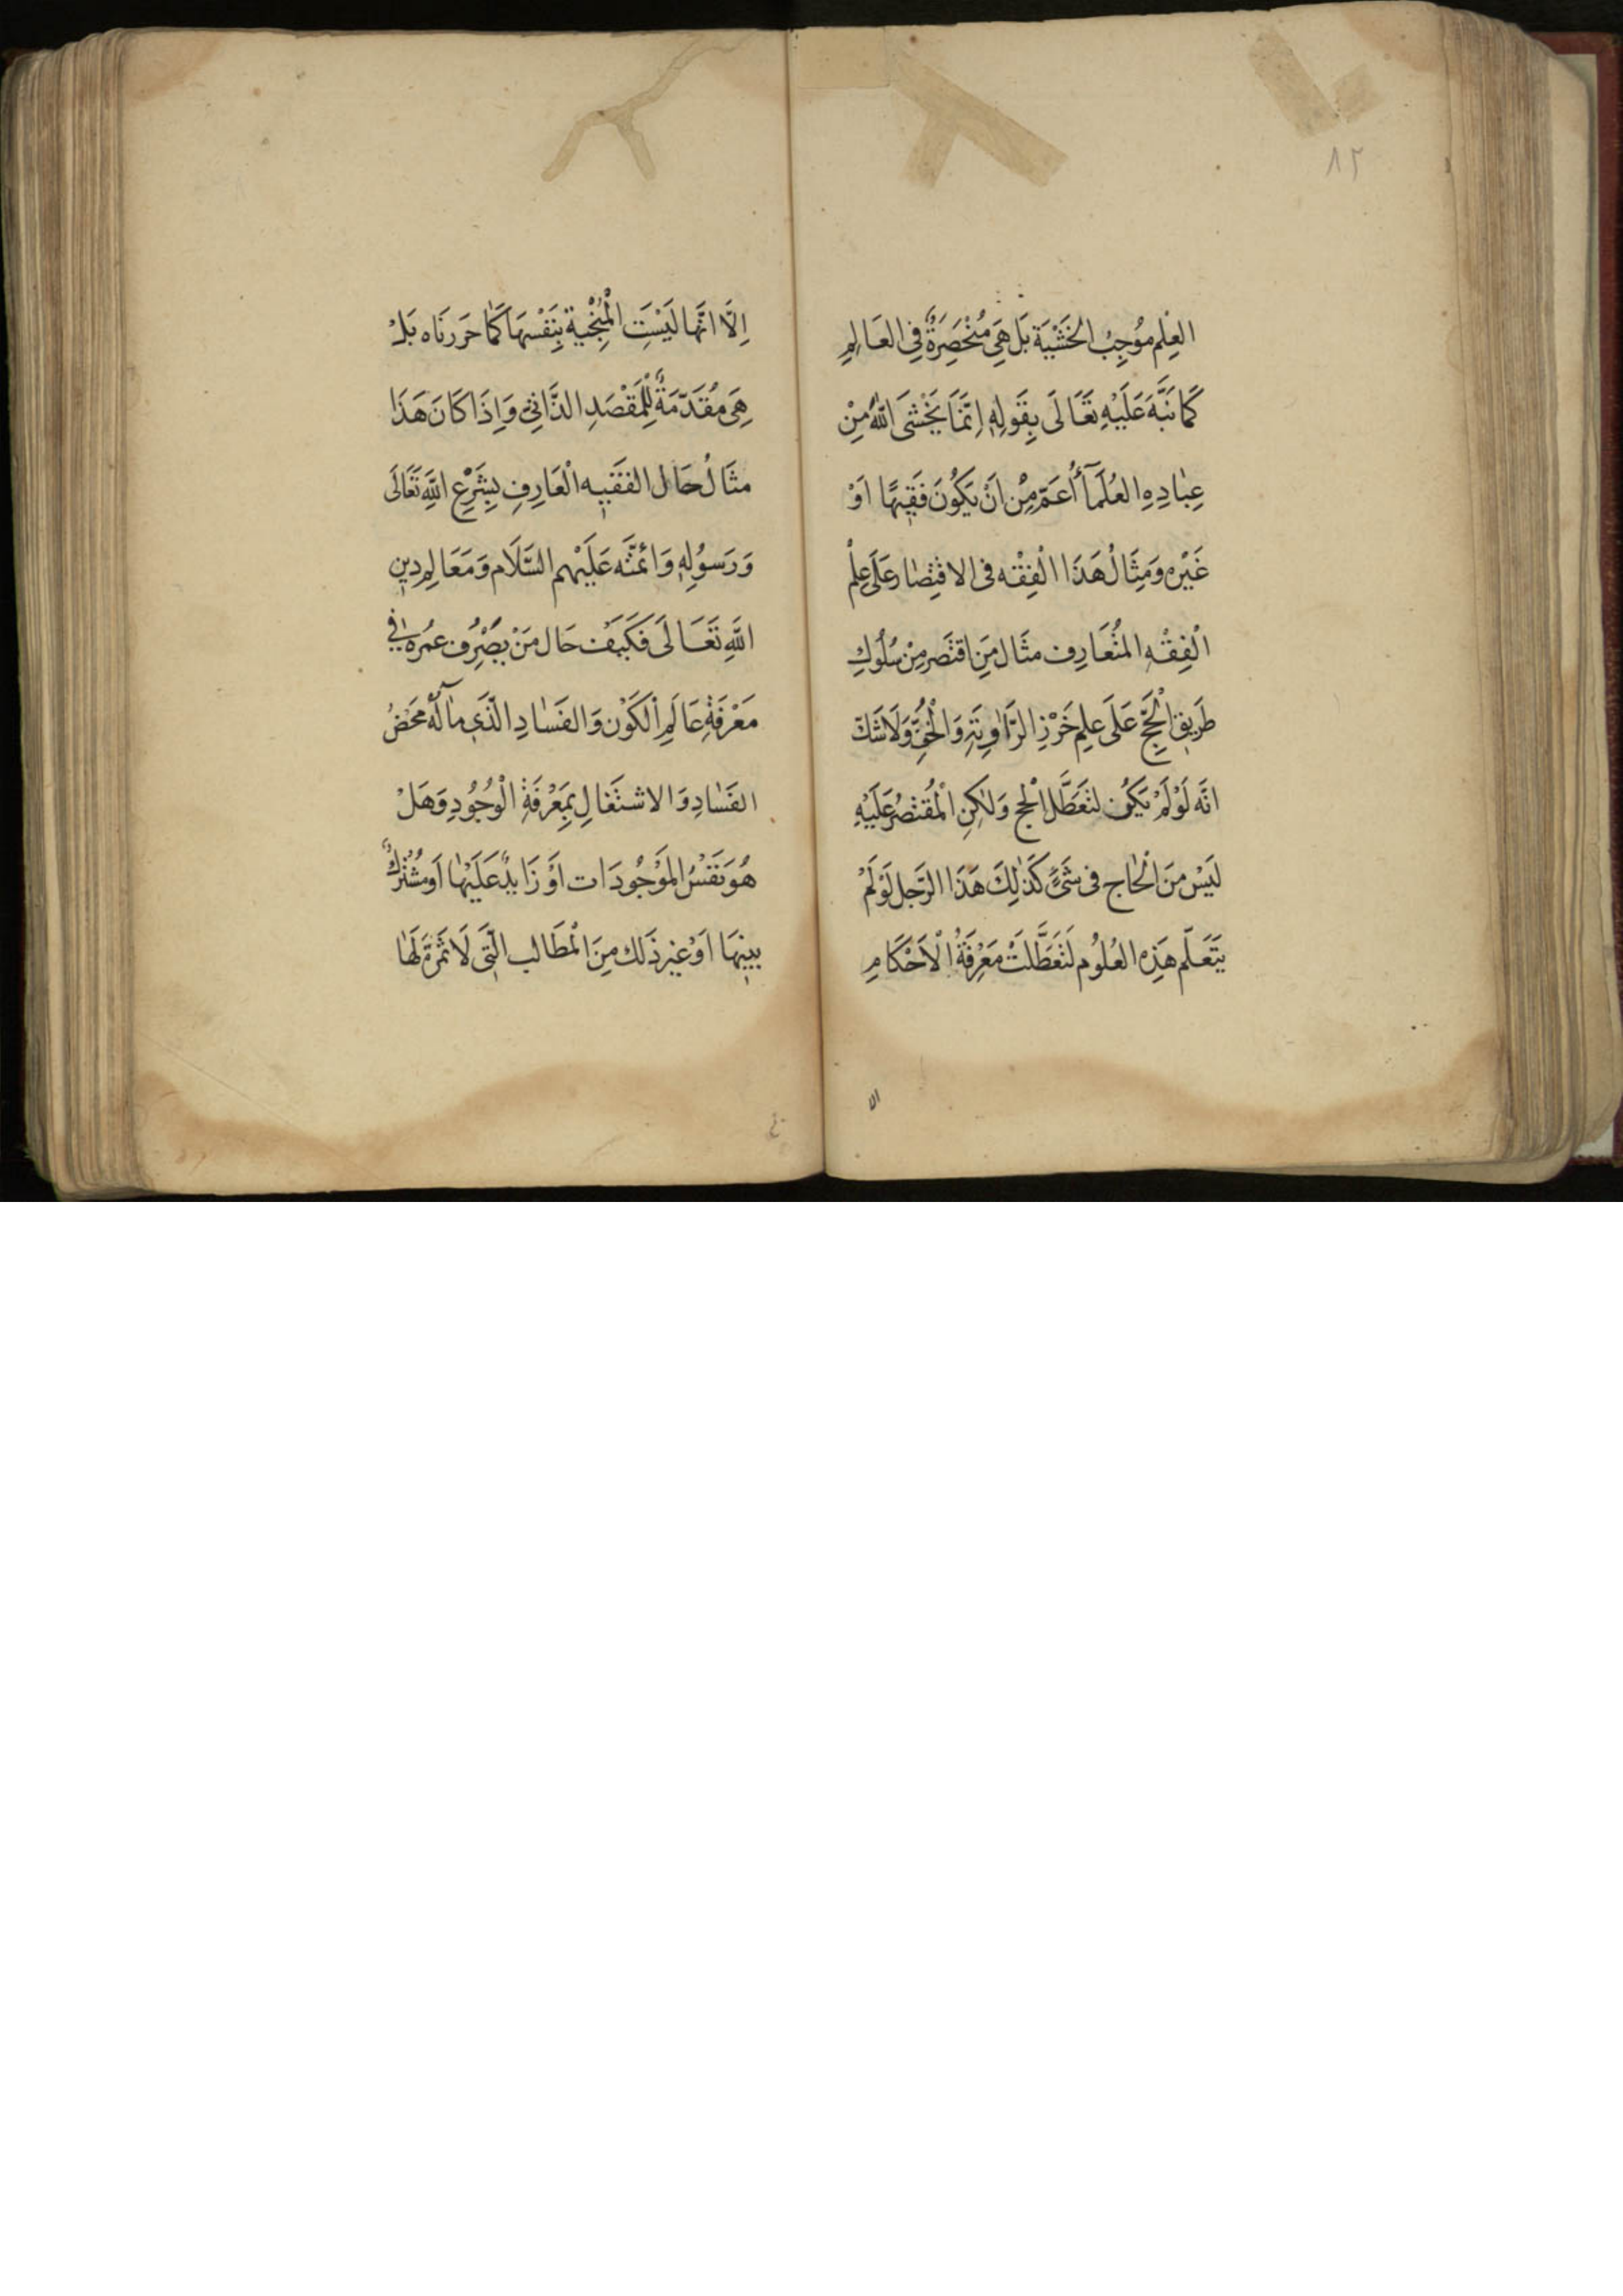 ٨٢
العِلْم مُوجِبُ الخَشْيَة بَل هِيَ مُنْحَصِرَةٌ فِي العَالِمِ
كَمَا نَبَّهَ عَلَيْهِ تَعَالَى بِقَولِهِ اِنَّمَا يَخْشَى اللهَ مِنْ
عِبَادِهِ العُلَمَآءُ أَعَمّ مِنْ اَنْ يَكُونَ فَقِيهًا اَوْ
غَيْرِه وَمِثَالُ هَذَا الْفِقْه فى الاقتِصَار عَلَى عِلْم
الْفِقْهِ المُتَعَارِف مثَال مَنِ اقتَصر مِنْ سُلُوكِ
طَرِيقِ الْحَجِّ عَلَى عِلمِ خَرْزِ الرَّاوِيَةِ وَالْخُفِّ وَلَا شَكَّ
انَّه لَوْ لَمْ يَكُن لتَعَطَّلَ الْحج وَلكِنِ الْمُقْتَصِرُ عَلَيْهِ
لَيْسَ مِنَ الْحَاج فى شَىْءٍ كَذلِكَ هَذَا الرَّجل لَوْ لَمْ
يَتَعَلَّم هَذِهِ العُلُوم لَتَعَطَّلَتْ مَعْرِفَةُ الْاَحْكَامِ
الا
اِلَّا انَّهَا لَيْسَتِ الْمُنْجْيَة بِنَفْسِهَا كَمَا حَررنَاه بَلْ
هِىَ مُقَدّمَةٌ لِلْمَقْصَدِ الذَّاتِىِّ وَاِذَا كَانَ هَذَا
مثَالُ حَال الفَقِيه الْعَارِفِ بِشَرْعِ اللهِ تَعَالَى
وَرَسوُلِهِ وَائمَّتَه عَلَيْهم السَّلَام وَمَعَالِم دِينِ
اللهِ تَعَالَى فَكَيْفَ حَال مَنْ يَصْرِف عمُرَه فى
مَعْرفَةِ عَالَمِ الْكَوْن وَالفَسَادِ الَّذَى مآلُه مَحْضُ
الفَسَادِ وَالاشتَغَالِ بِمَعْرفَةِ الْوُجُودِ وَهَلْ
هُوَ نَفْسُ المَوْجُودَات اَوْ زَايدٌ عَلَيْهَا اَو مُشْتَرَكٌ
بَينهَا اَوْ غير ذَلك مِنَ الْمَطَالب الَّتِى لَا ثَمَرَةَ لَهَا